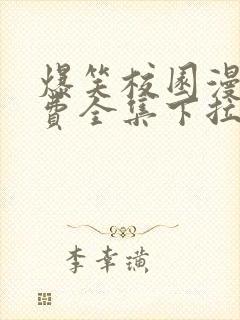 爆笑校园漫
费全集下拉
李幸璜